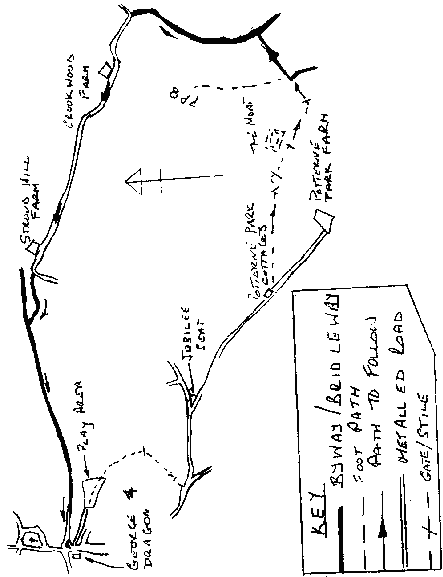 CROOKWOOD
FARM
STROUD HILL
FARM
THE MOAT
POTTERNE PARK
COTTAGES
POTTERNE
PARK FARM
JUBILEE
SEAT
PLAY AREA
GEORGE &
DRAGON
KEY
BYWAY/BRIDLEWAY
FOOT PATH
PATH TO FOLLOW
METALLED ROAD
GATE/STILE